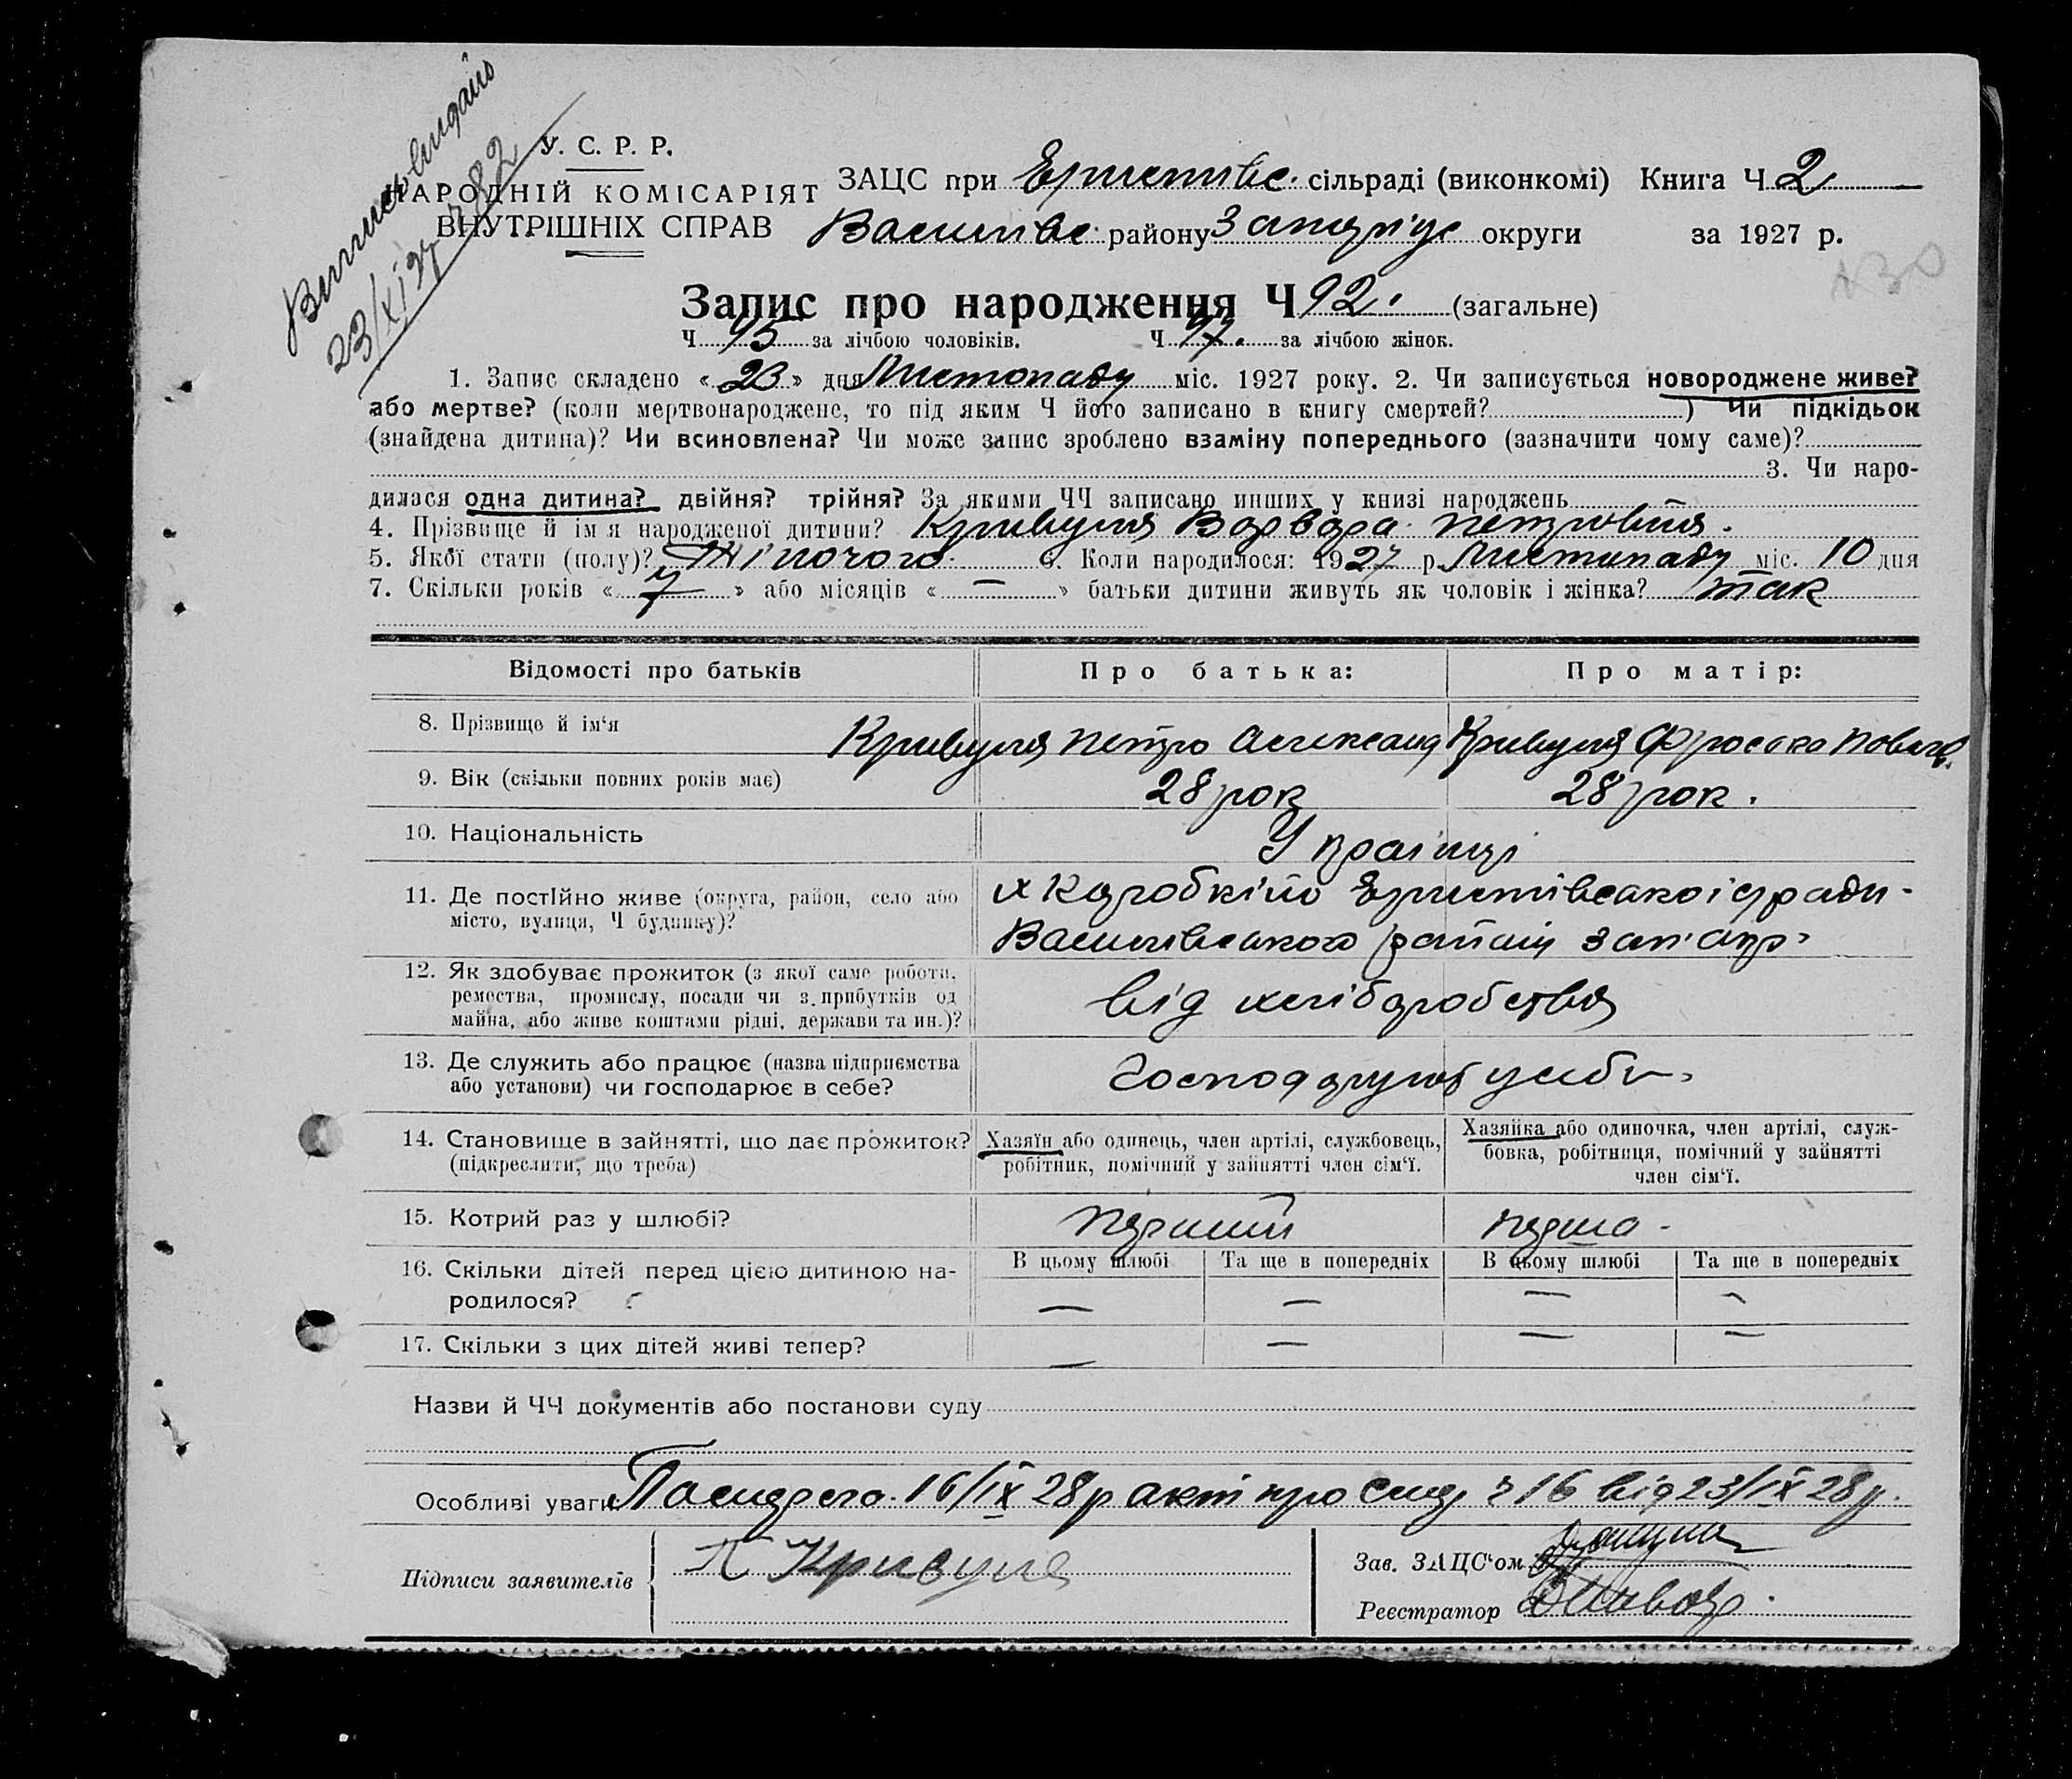 23/XI 27
У. С. Р. Р.
НАРОДНІЙ КОМІСАРІЯТ
ВНУТРІШНІХ СПРАВ
ЗАЦС при Еристівс. сільраді (виконкомі) Книга Ч 2.
Василівс. району Запоріз округи за 1927 р.
Запис про народження Ч 92. (загальне)
Ч 45 за лічбою чоловіків. Ч 47. за лічбою жінок.
1. Запис складено « 23 » дня Листопаду міс. 1927 року. 2. Чи записується новороджене живе?
або мертве? (коли мертвонароджене, то під яким Ч його записано в книгу смертей? ) Чи підкідьок
(знайдена дитина)? Чи всиновлена? Чи може запис зроблено взаміну попереднього (зазначити чому саме)?
3. Чи наро-
дилася одна дитина? двійня? трійня? За якими ЧЧ записано инших у книзі народжень
4. Прізвище й ім'я народженої дитини? Кривуля Варвара Петровна.
5. Якої стати (полу)? Жіночого. 6. Коли народилося: 1927 р. Листопаду міс. 10 дня
7. Скільки років « 7 » або місяців « — » батьки дитини живуть як чоловік і жінка? так
Відомості про батьків Про батька: Про матір:
8. Прізвище й ім'я Кривуля Петро Александ Кривуля Фроська Павлов.
9. Вік (скільки повних років має) 28 рок 28 рок.
10. Національність Українці
11. Де постійно живе (округа, район, село або
місто, вулиця, Ч будинку)?
х Коробкіно Еристівської с/ради
Василівського району Зап. окр.
12. Як здобуває прожиток (з якої саме роботи,
ремества, промислу, посади чи з прибутків од
майна, або живе коштами рідні, держави та ин.)?
від хліборобства
13. Де служить або працює (назва підприємства
або установи) чи господарює в себе?
Господарюют у себи
14. Становище в зайнятті, що дає прожиток?
(підкреслити, що треба)
Хазяїн або одинець, член артілі, службовець,
робітник, помічний у зайнятті член сім'ї.
Хазяйка або одиночка, член артілі, служ-
бовка, робітниця, помічний у зайнятті
член сім'ї.
15. Котрий раз у шлюбі? перший перша
В цьому шлюбі Та ще в попередніх В цьому шлюбі Та ще в попередніх
16. Скільки дітей перед цією дитиною на-
родилося? — — — —
17. Скільки з цих дітей живі тепер? — — — —
Назви й ЧЧ документів або постанови суду
Особливі уваги: 16/IX 28р акт про смер ч 16 від 23/IX 28р.
Підписи заявителів П Кривуля
Зав. ЗАЦС'ом
Реєстратор